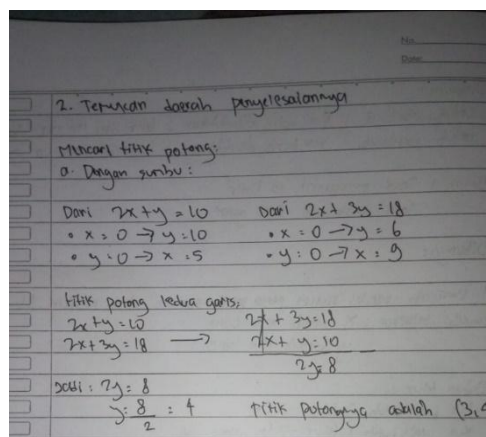 No.
Date:
2. Tentukan daerah penyelesaiannya
Mencari titik potong:
a. Dengan sumbu:
Dari 2x + y = 10 Dari 2x + 3y = 18
• x = 0 → y = 10 • x = 0 → y = 6
• y = 0 → x = 5 • y = 0 → x = 9
titik potong kedua garis;
2x + y = 10 2x + 3y = 18
2x + 3y = 18 → 2x + y = 10 -
2y = 8
Jadi : 2y = 8
y = 8/2 = 4 titik potongnya adalah (3,4